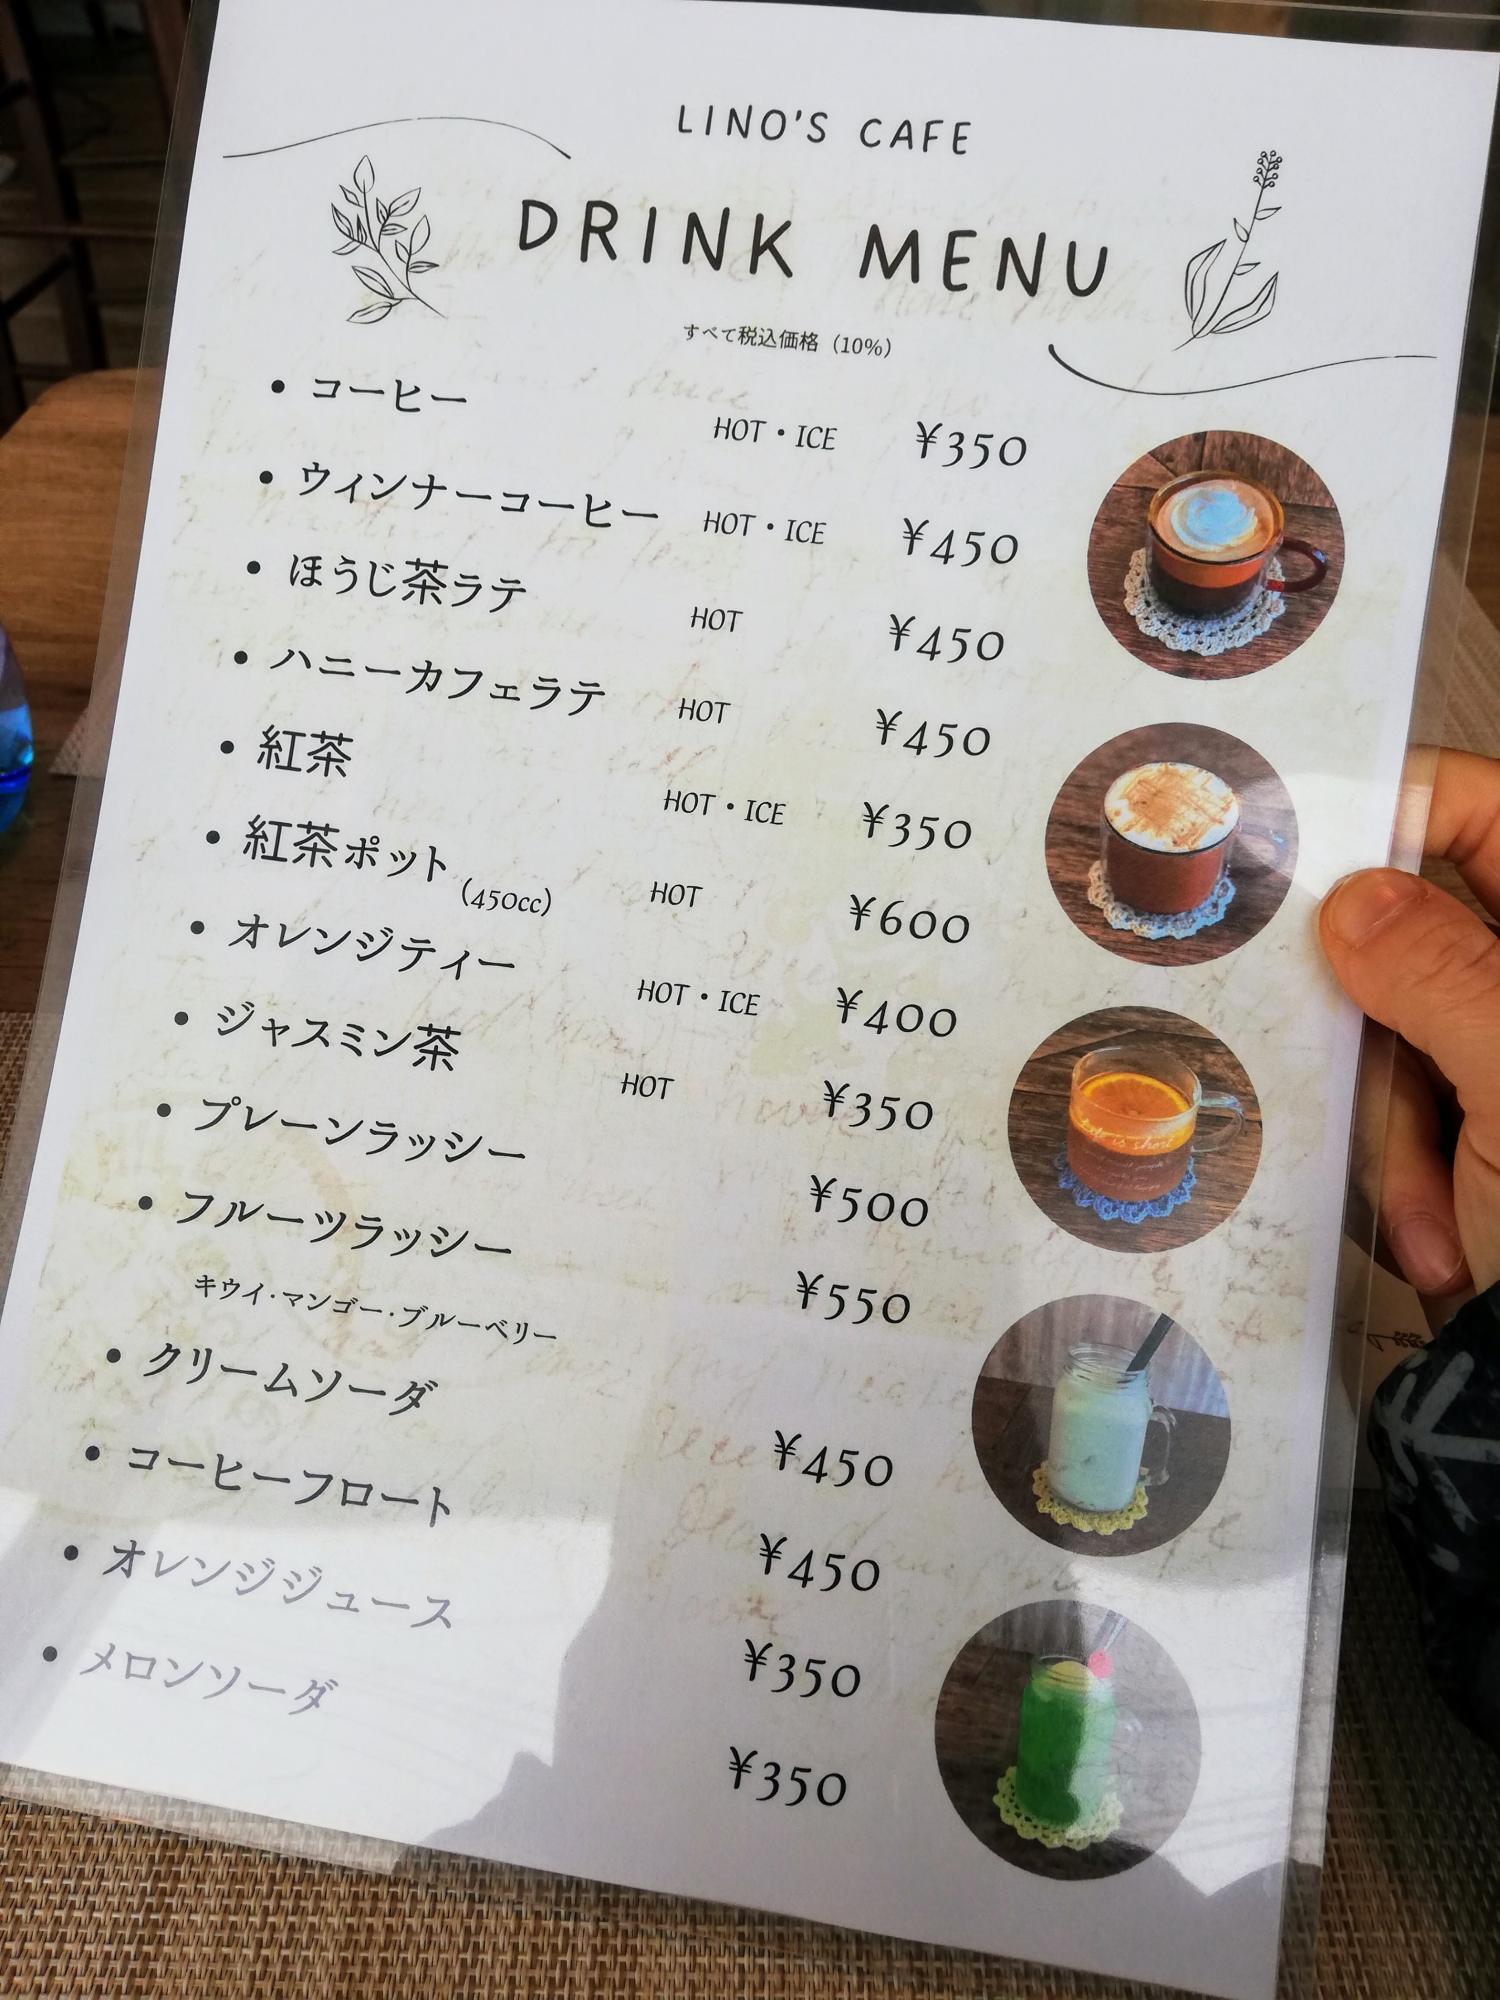 LINO'S CAFE
DRINK MENU
すべて税込価格（10%）
• コーヒー HOT・ICE ¥350
• ウィンナーコーヒー HOT・ICE ¥450
• ほうじ茶ラテ HOT ¥450
• ハニーカフェラテ HOT ¥450
• 紅茶 HOT・ICE ¥350
• 紅茶ポット (450cc) HOT ¥600
• オレンジティー HOT・ICE ¥400
• ジャスミン茶 HOT ¥350
• プレーンラッシー ¥500
• フルーツラッシー ¥550
キウイ・マンゴー・ブルーベリー
• クリームソーダ ¥450
• コーヒーフロート ¥450
• オレンジジュース ¥350
• メロンソーダ ¥350